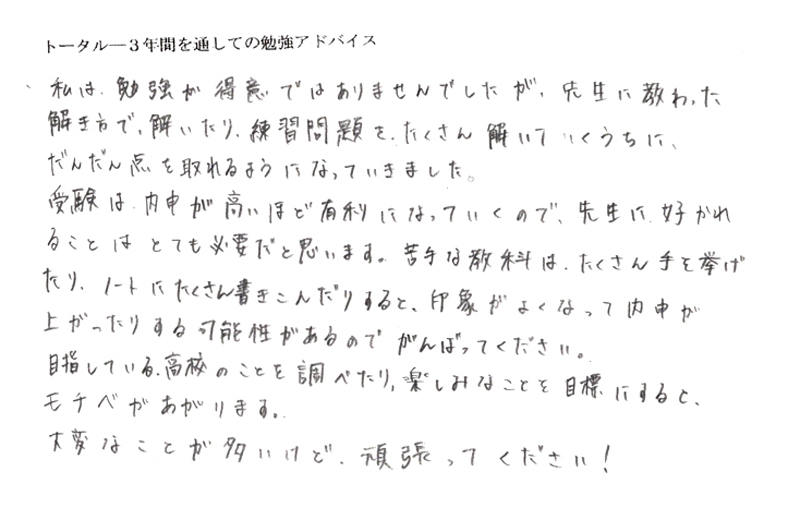 トータル―３年間を通しての勉強アドバイス
私は、勉強が得意ではありませんでしたが、先生に教わった
解き方で、解いたり、練習問題を、たくさん解いていくうちに、
だんだん点を取れるようになっていきました。
受験は、内申が高いほど有利になっていくので、先生に好かれ
ることはとても必要だと思います。苦手な教科は、たくさん手を挙げ
たり、ノートにたくさん書きこんだりすると、印象がよくなって内申が
上がったりする可能性があるのでがんばってください。
目指している、高校のことを調べたり、楽しみなことを目標にすると、
モチベがあがります。
大変なことが多いけど、頑張ってください！